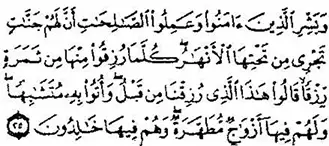 وَبَشِّرِ الَّذِينَ ءَامَنُوا وَعَمِلُوا الصَّالِحَاتِ أَنَّ لَهُمْ جَنَّاتٍ
تَجْرِي مِن تَحْتِهَا الْأَنْهَارُ كُلَّمَا رُزِقُوا مِنْهَا مِن ثَمَرَةٍ
رِّزْقًا قَالُوا هَذَا الَّذِي رُزِقْنَا مِن قَبْلُ وَأُتُوا بِهِ مُتَشَابِهًا
وَلَهُمْ فِيهَا أَزْوَاجٌ مُّطَهَّرَةٌ وَهُمْ فِيهَا خَالِدُونَ ٢٥